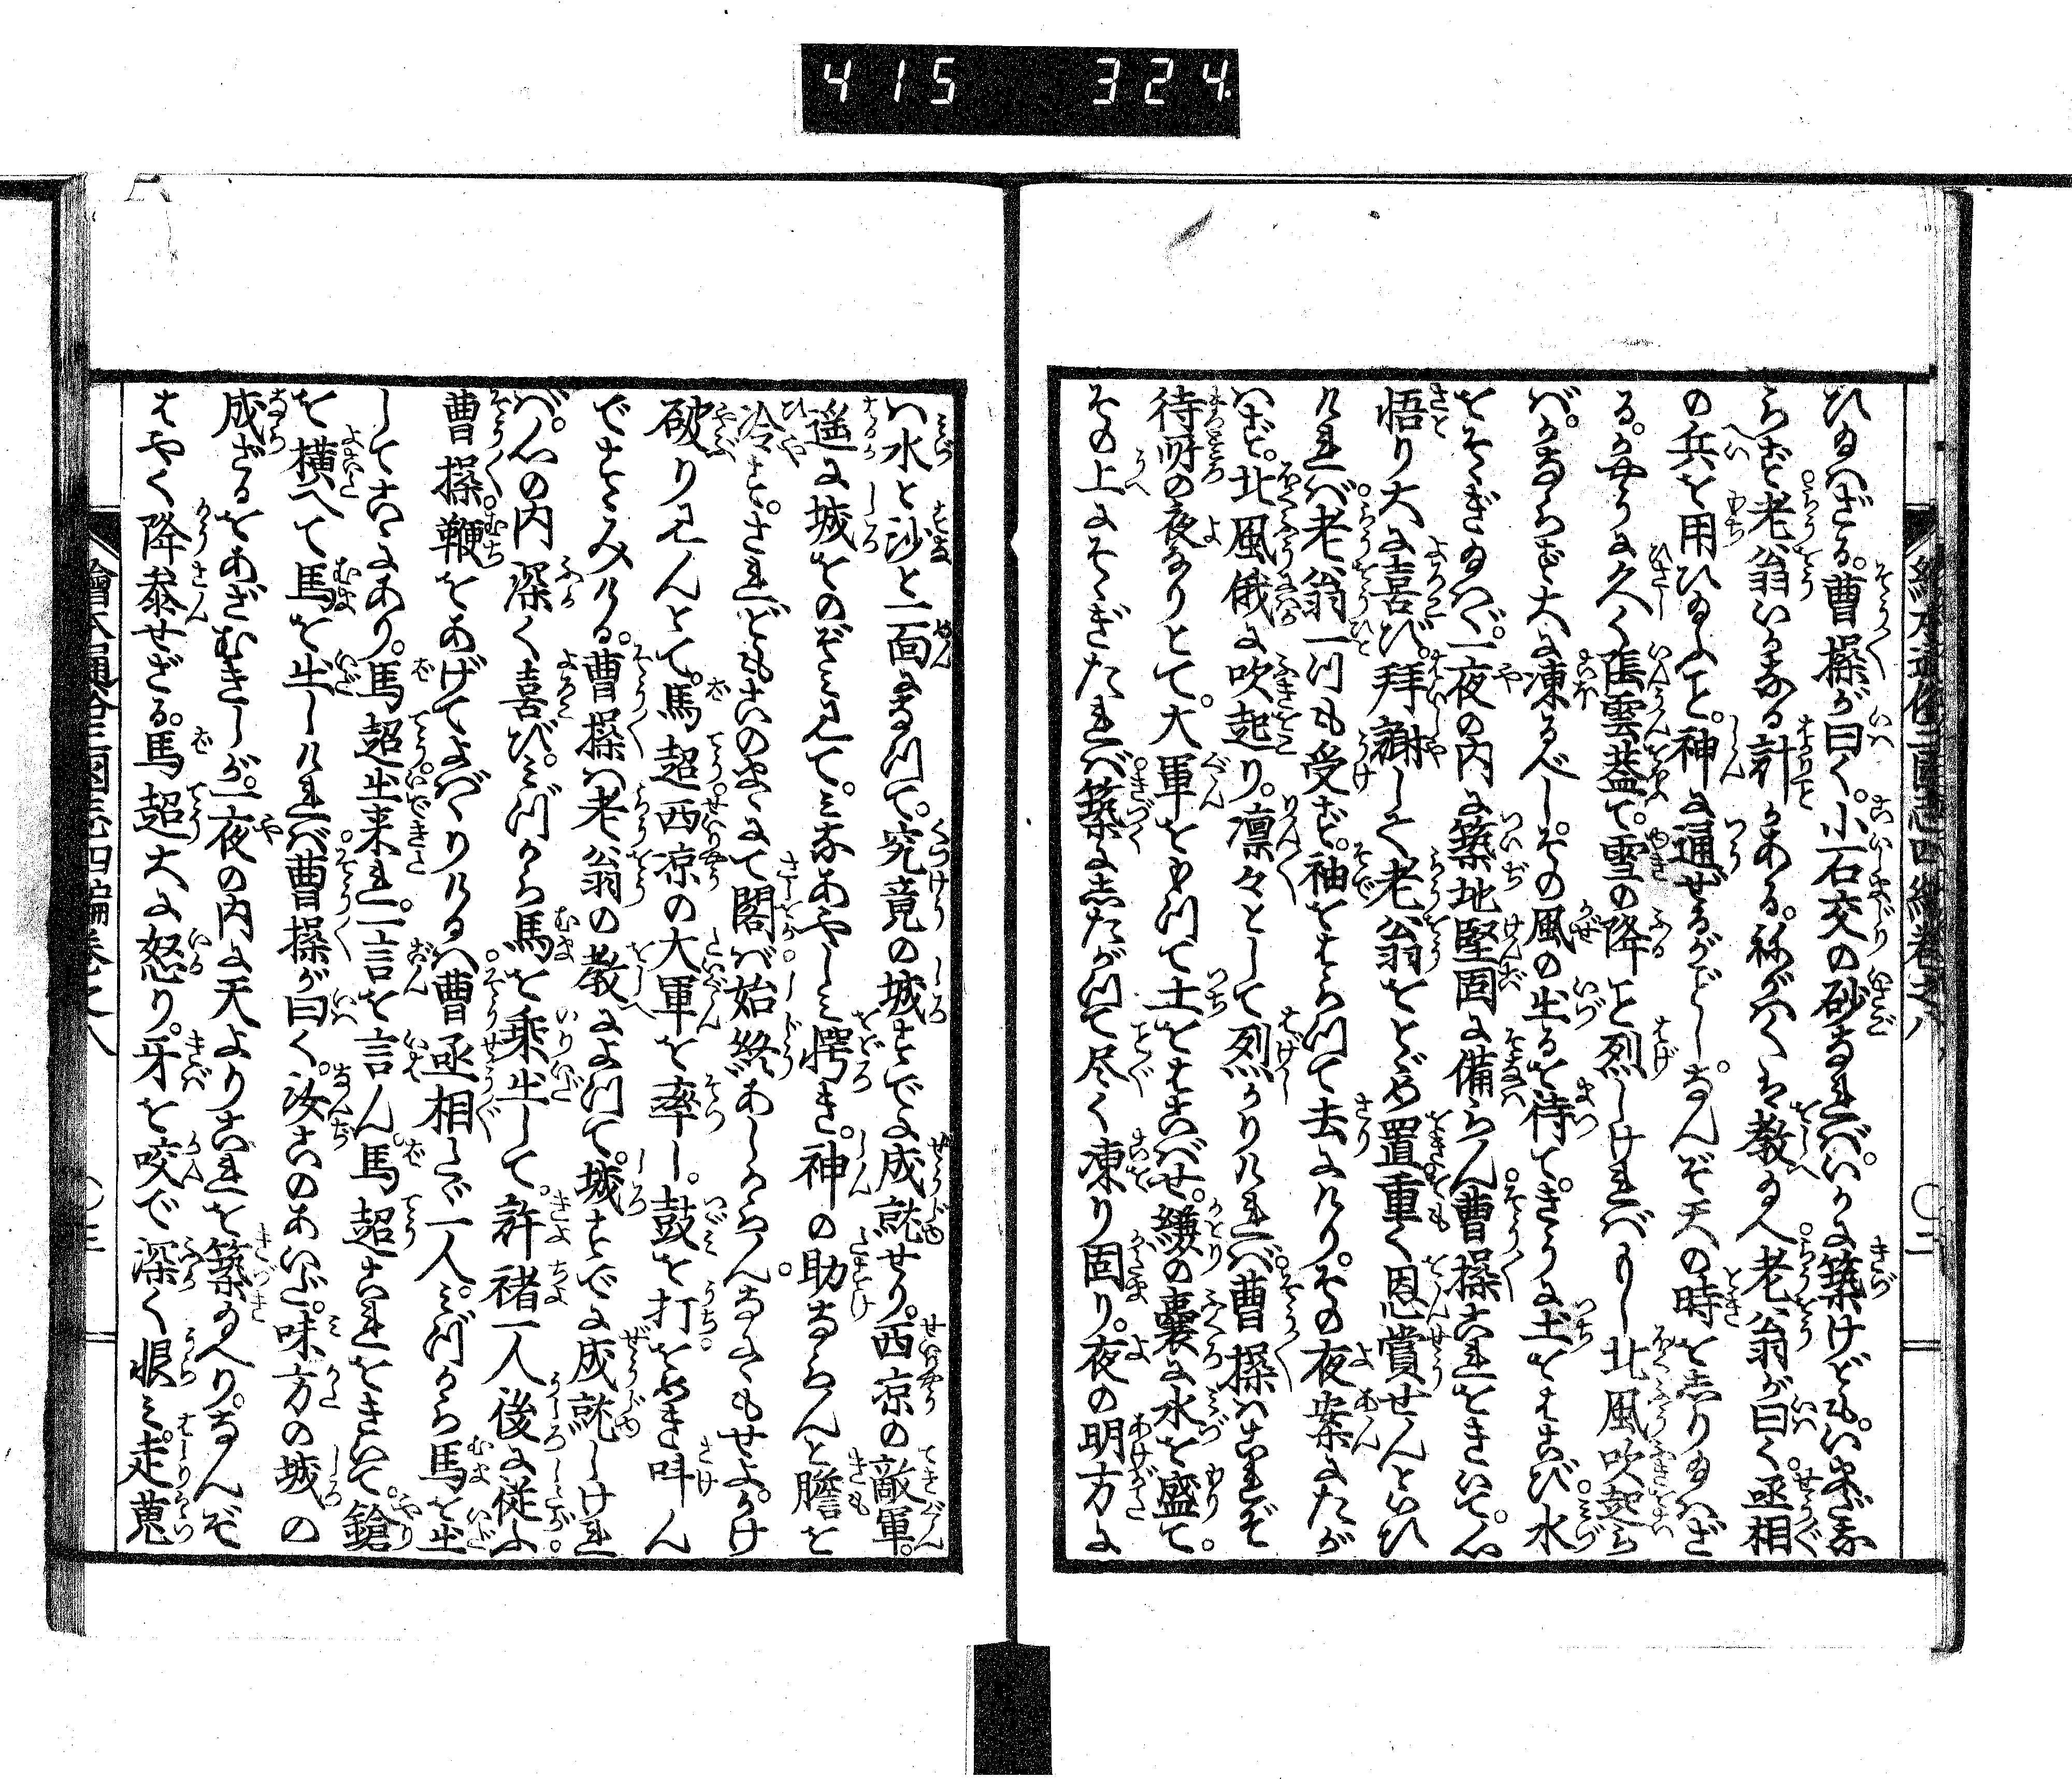 415 324.
ひ給はざる。曹操が曰く。小石交の砂なれば。いかに築けども。いまだ
らず。老翁いかなる計かある。ねがはくは教給へ老翁が曰く。丞相
の兵を用ひ給ふこと。神に通ぜるがごとし。なんぞ天の時を志り給はざ
る。かやうに久く張雲蓋て。雪の降こと烈しければもし北風吹起ら
ば。かならず大に凍るべし。その風の出るを待て。きうに土をはこび水
をそゝぎ給はゞ。一夜の内に築地堅固に備らん。曹操これをきいて。心
悟り大に喜び。拝謝して老翁をとゞめ置重く恩賞せんといひ
ければ。老翁一ツも受ず。袖をはらつて去にけり。その夜案にたが
はず。北風俄に吹起り。凛々として烈かりければ。曹操はこれぞ
待所の夜なりとて。大軍をもつて土をはこばせ。縑の嚢に水を盛て。
その上にそゝぎたれば。築にしたがつて尽く凍り固り。夜の明方に
絵本通俗三国志四編巻之八
〇二
ハ水と沙と一面になつて。究竟の城まで成就せり。西凉の敵軍。
遥に城をのぞみ見て。みなあやしみ愕き。神の助ならんと膽を
冷す。されどもこのまゝにて閣ば始終あしからん。なにともせよ。かけ
破り見んとて。馬超西凉の大軍を率し。鼓を打をめき叫ん
ですゝみける。曹操は老翁の教によつて。城すでに成就しけれ
ば。心の内深く喜び。みづから馬を乗出して。許褚一人後に従ふ。
曹操鞭をあげてよばゝりけるハ曹丞相たゞ一人。みづから馬を出
してこゝにあり。馬超出来れ。一言を言ん馬超これをきいて。鎗
を横へて馬を出しければ。曹操が曰く。汝このあいだ。味方の城の
成ざるをあざむきしが。一夜の内に天よりこれを築給へり。なんぞ
はやく降参せざる。馬超大に怒り。牙を咬で深く恨み。走蒐
繪本通俗三國志四編巻之八
〇三